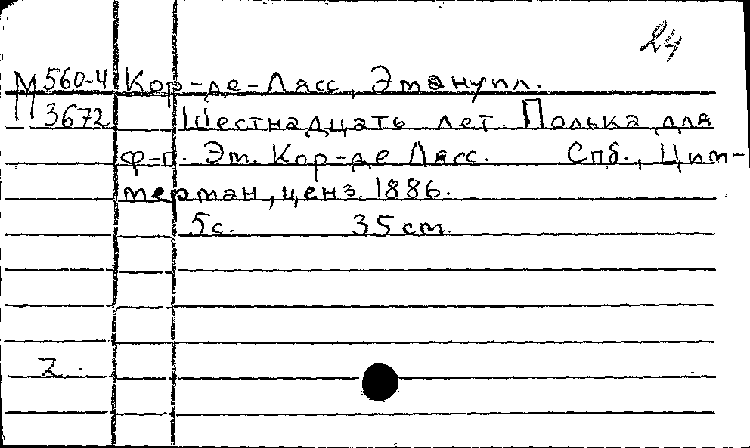 24
М 560-4 Кор-де-Ласс, Эмануил.
3672 Шестнадцать лет. Полька для
ф-п. Эм. Кор-де Ласс. Спб., Цим-
мерман, ценз. 1886.
5 с. 35 см.